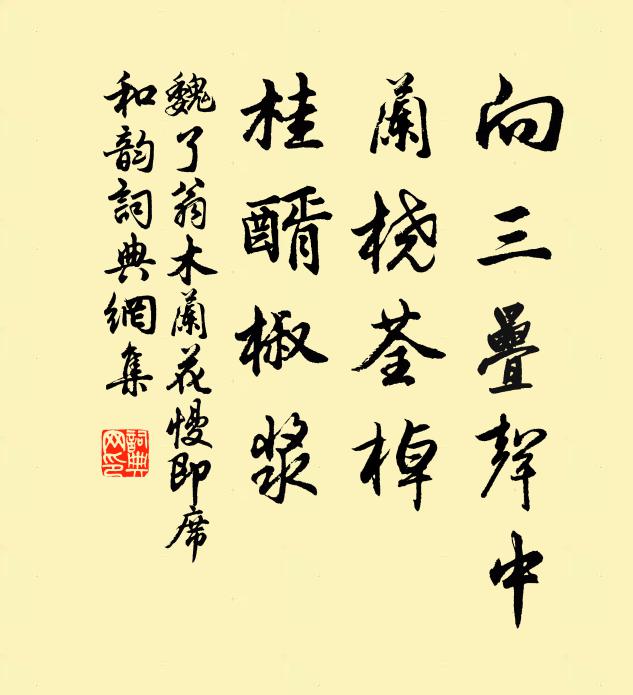 向三疊聲中
蘭橈荃棹
桂醑椒漿
魏了翁木蘭花慢即席
和韵詞典網集
詞典网印